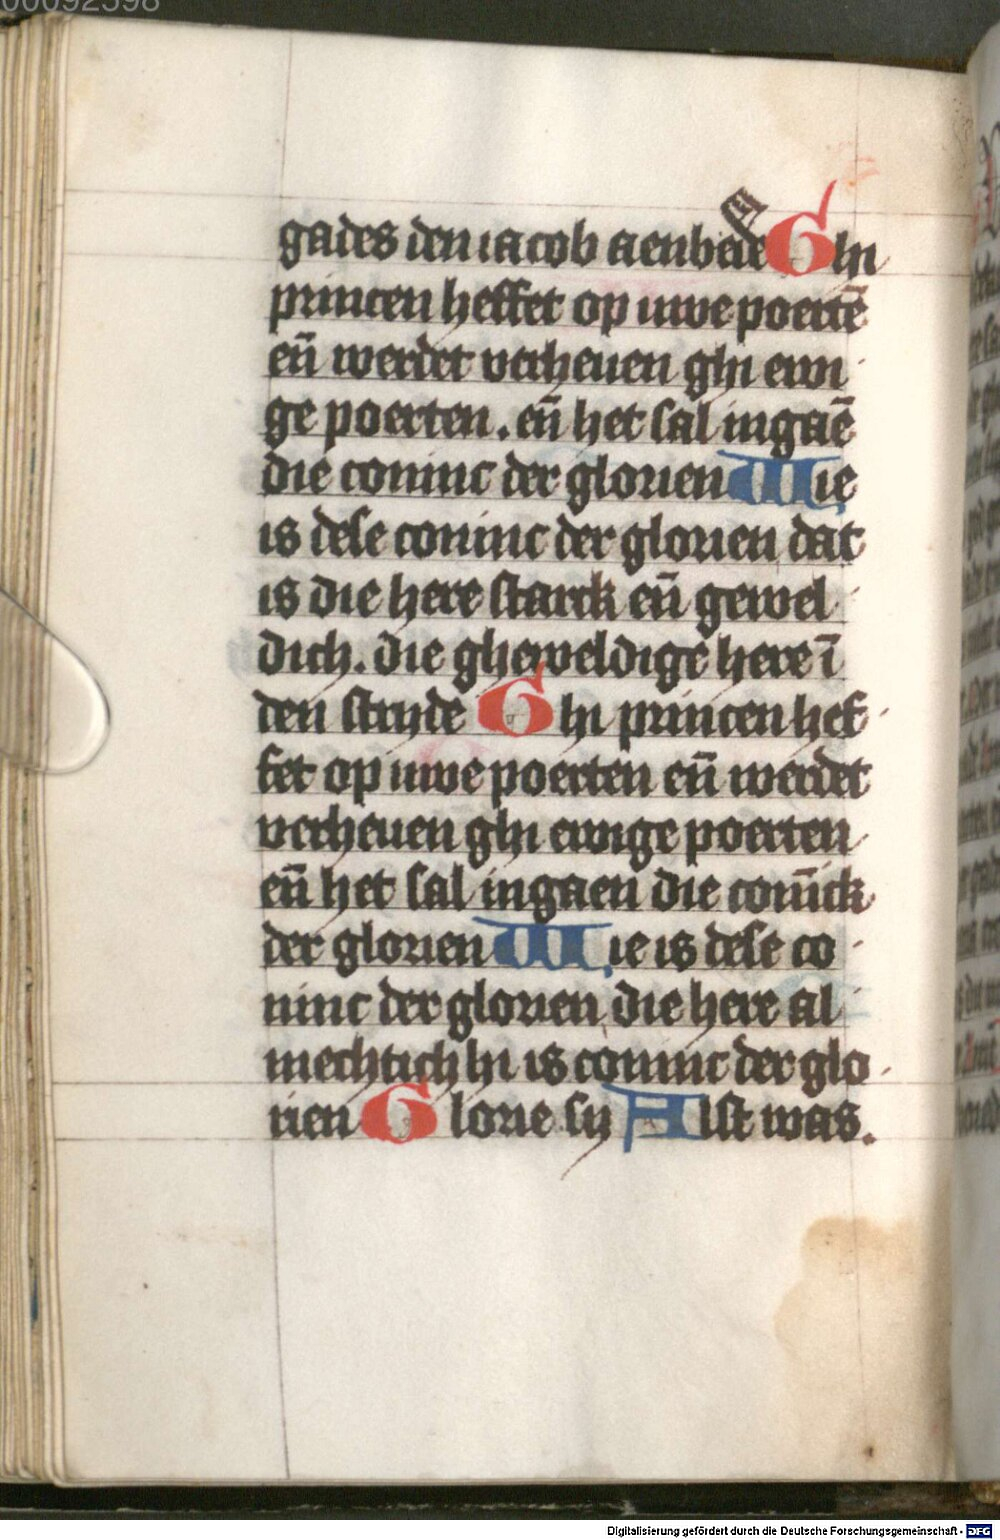 00092598
gades den iacob aenbede Ghi
princen heffet op uwe poertē
eñ werdet verheuen ghi ewi
ge poerten. eñ het sal ingaē
die coninc der glorien Wie
is dese coninc der glorien dat
is die here starck eñ gewel
dich. die gheweldige here ī
den stryde Ghi princen hef
fet op uwe poerten eñ werdet
verheuen ghi ewige poerten
eñ het sal ingaen die conīck
der glorien Wie is dese co
ninc der glorien die here al
mechtich hi is coninc der glo
rien Glorie sy Alst was.
Digitalisierung gefördert durch die Deutsche Forschungsgemeinschaft - DFG